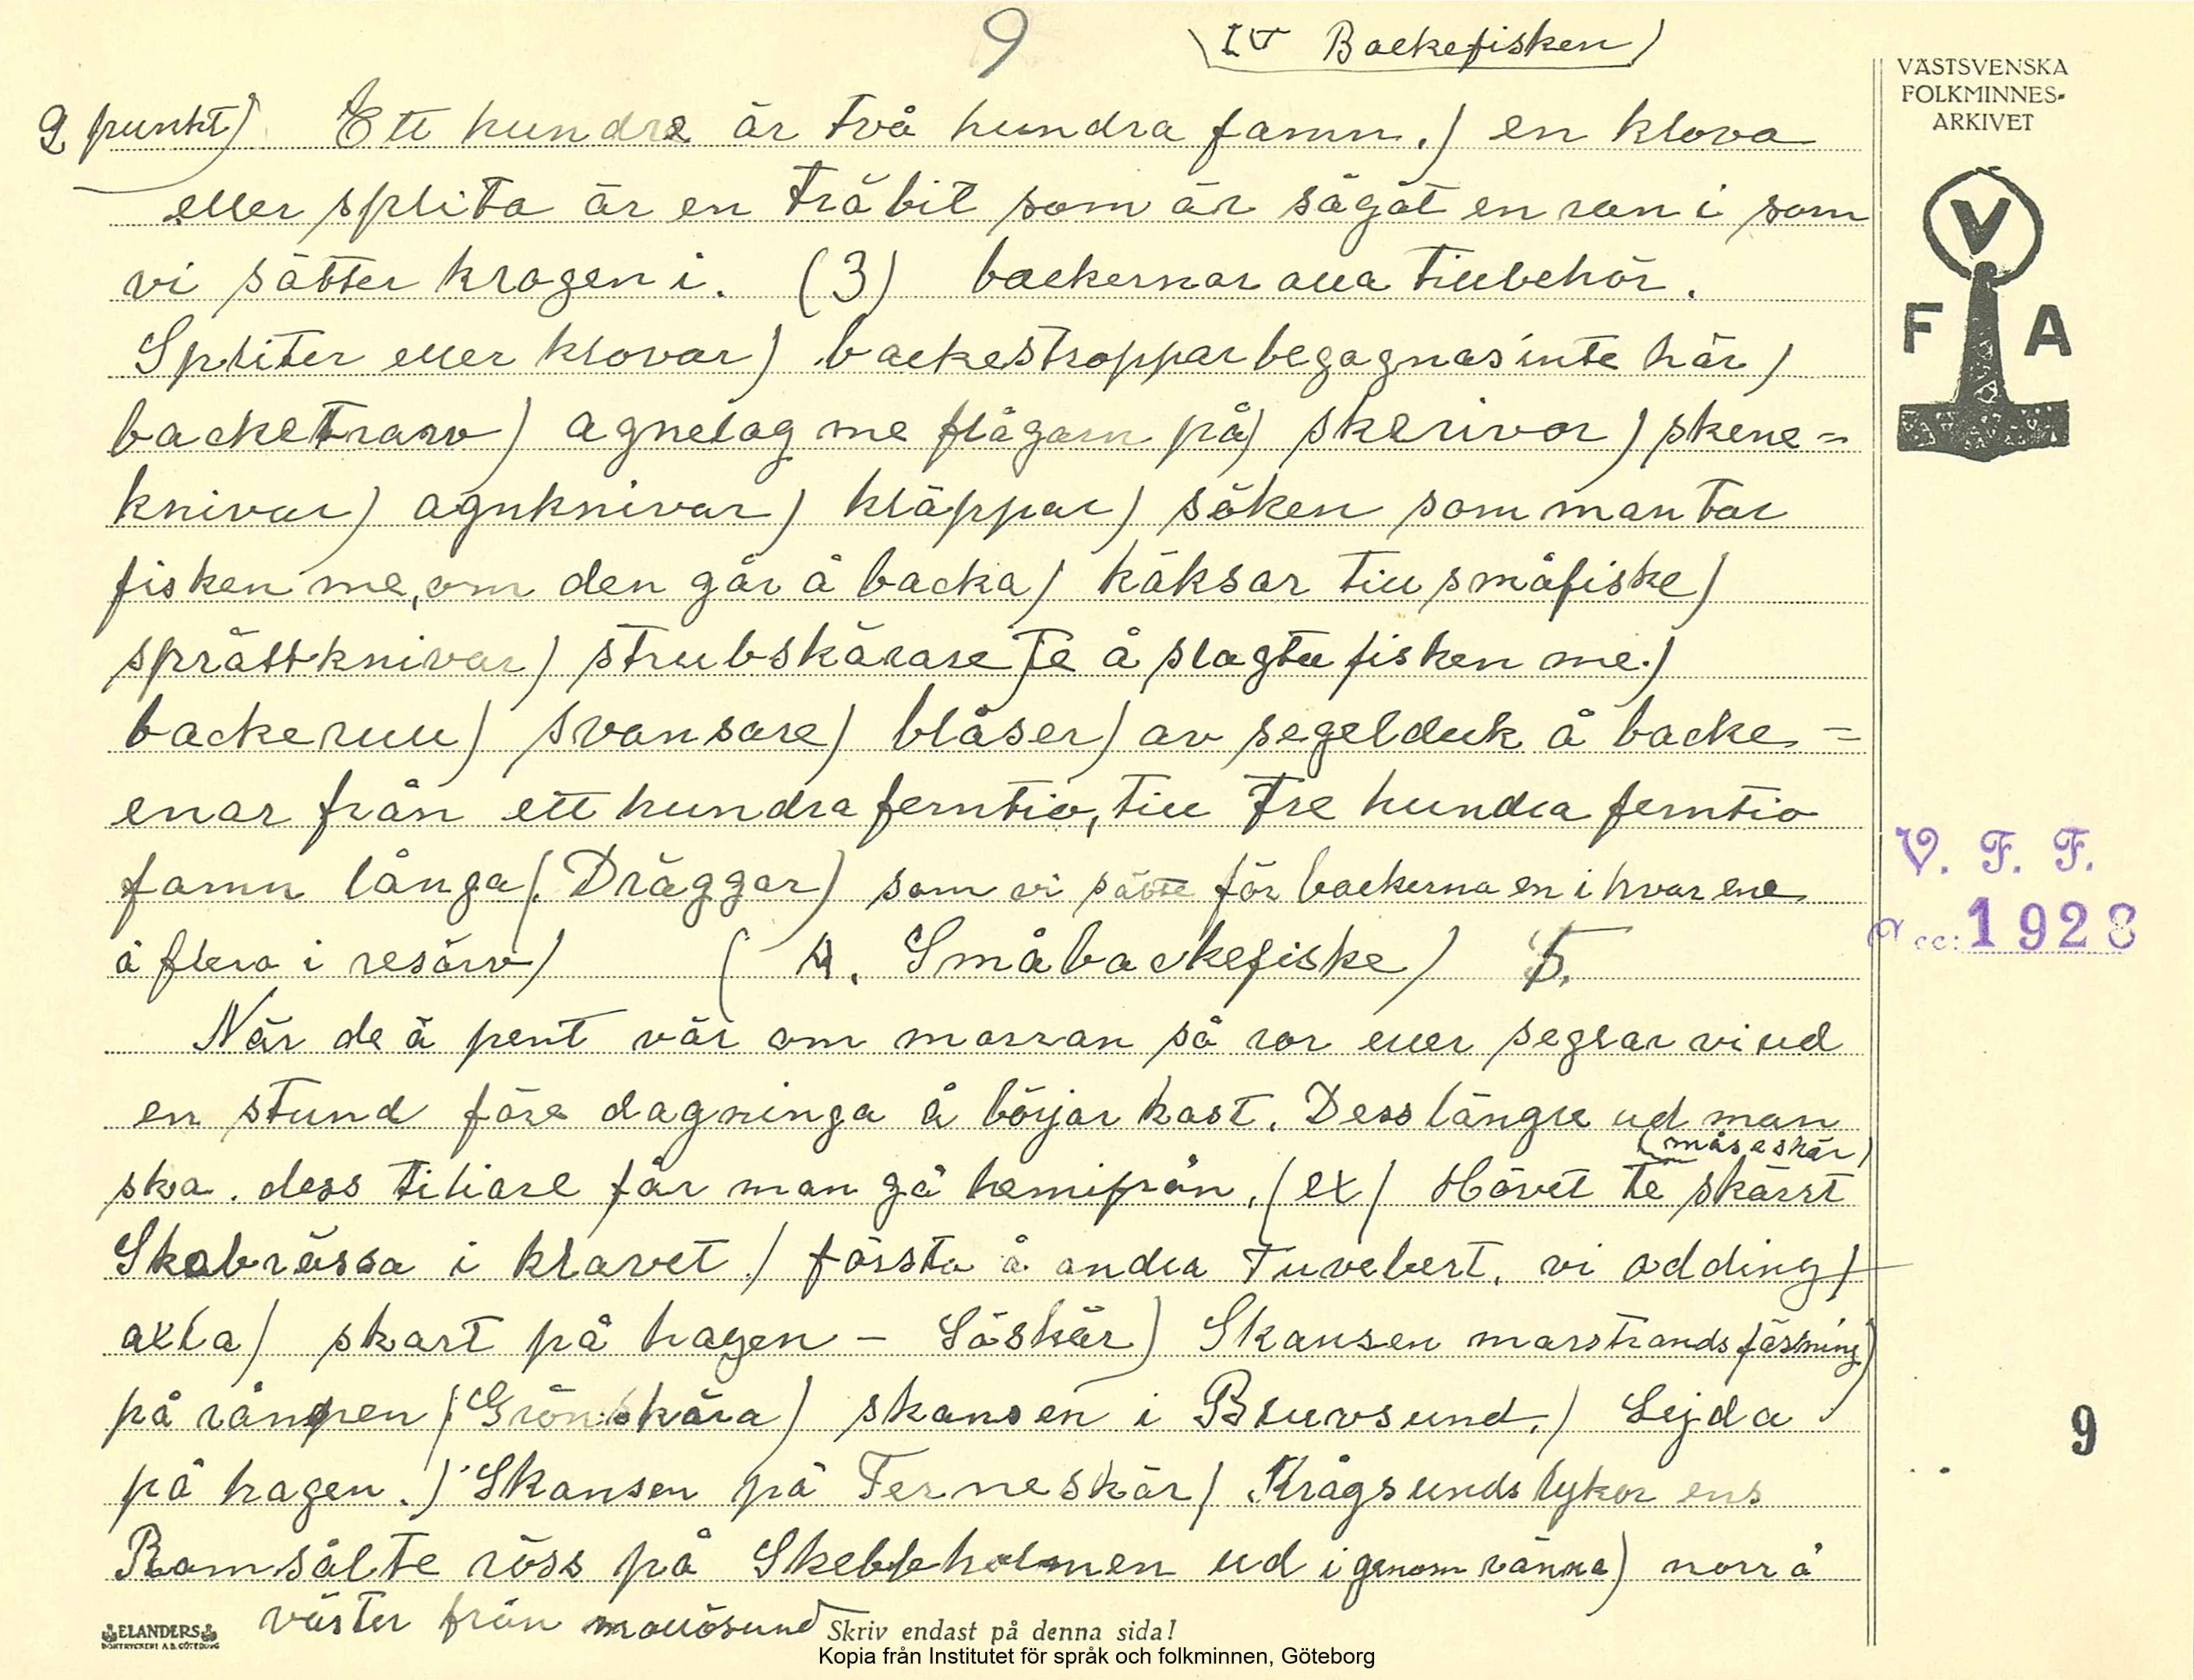 9
(IV Backefisken)
VÄSTSVENSKA
FOLKMINNES-
ARKIVET
9 punkt) Ett hundra är två hundra famn.) en klova
eller splita är en träbit som är sågåt en ran i som
vi sätter krogen i. (3) backernar alla tillbehör.
Spliter eller klovar) backestroppar begagnas inte här)
backetrasv) agnelag me flågarn på) skerivor) skene=
knivar) agnknivar) kläppar) söken som man tar
fisken me, om den går å backa) käksar till småfiske)
sprättknivar) strubskärare Te å slagta fisken me.)
backerull) svansare) blåser) av segelduk å backe=
enar från ett hundra femtio, till Tre hundra femtio
famn långa (. Dräggar) som vi sätte för backerna en i hvar ene
å flera i resärv) (4. Småbackefiske) 5.
När de ä pent vär om morran så ror eller seglar vi ud
en stund före dagninga å börjar kast. Dess längre ud man
ska. dess tiliare får man gå hemifrån. (ex) Hövet te skärst
(måseskär)
Skabrässa i klavet.) första å andra Tuvebert. vi odding)
axla) skart på hagen - Söskär) Skansen marstrands fäsning)
på rampen (Grönskära) skansen i Bluvsund.) Lejda
på hagen.) Skansen på Ferneskär) Krågsunds lykor ens
Ramsålte röss på Skebbholmen ud igenom ränna) norr å
väster från mollösund
V F A
V. F. F.
Acc: 1928
9
ELANDERS
BOKTRYCKERI A.B. GÖTEBORG
Skriv endast på denna sida!
Kopia från Institutet för språk och folkminnen, Göteborg